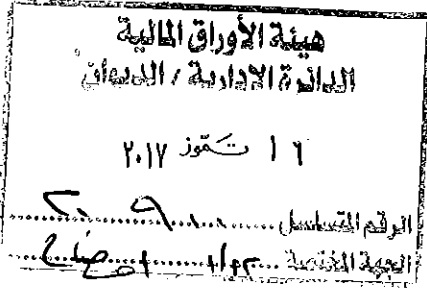 هيئة الأوراق المالية
الدائرة الادارية / الديوان
١٦ تـمّوز ٢٠١٧
الرقم المتسلسل
الجهة المختصة